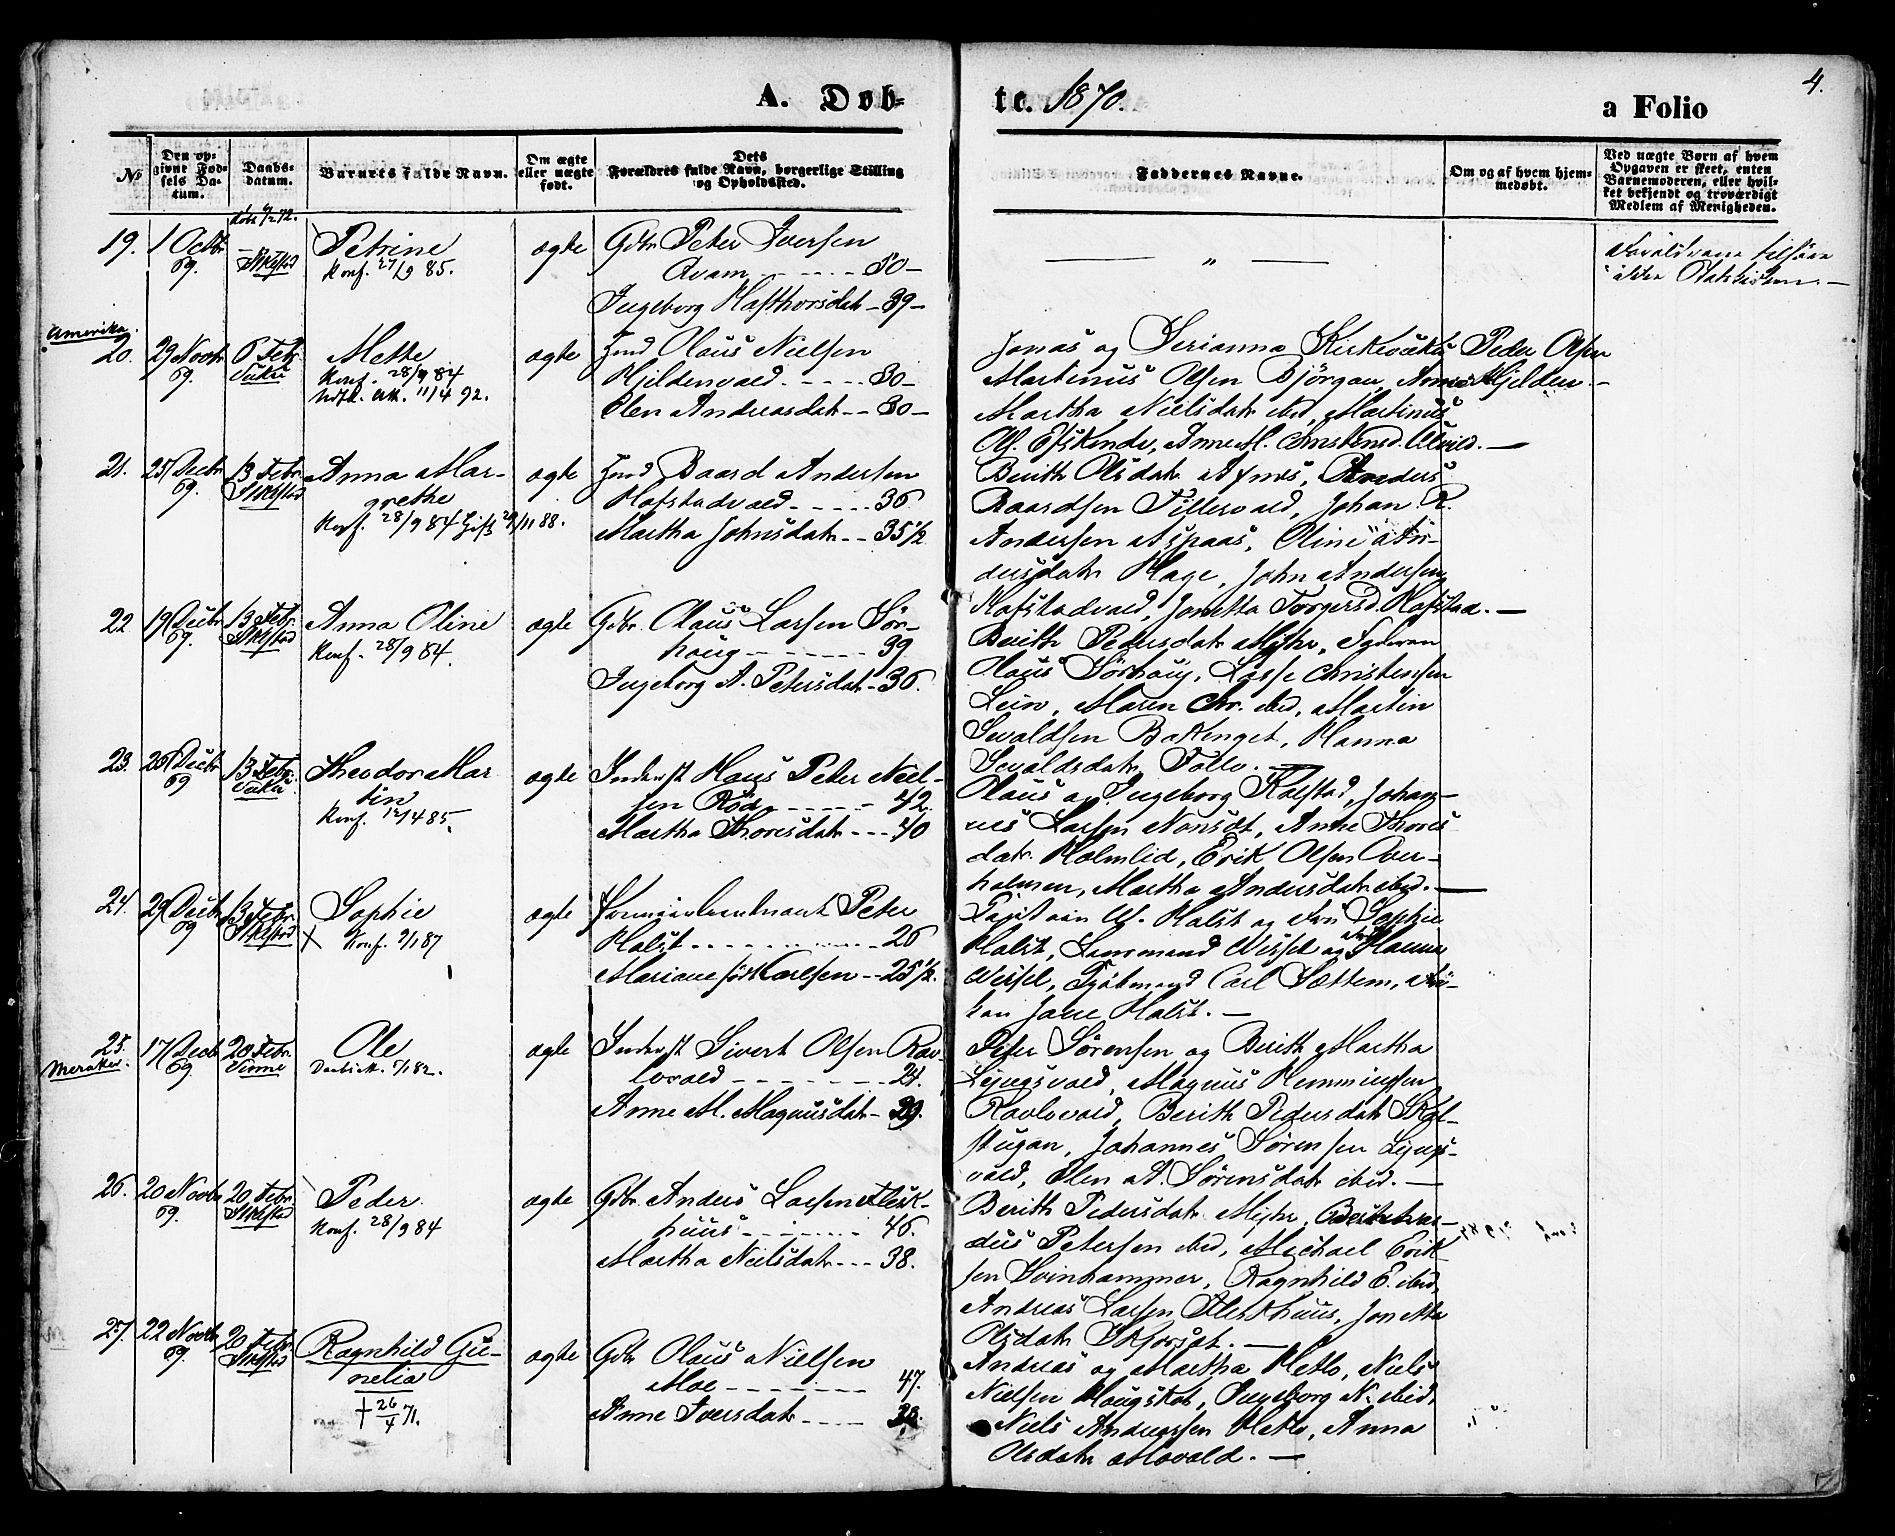 4.
A. Døb-
te. 1870.
a Folio
No
Den op-
givne Fød-
sels Da-
tum.
Daabs-
datum.
Barnets fulde Navn.
Om ægte
eller uægte
født.
Dets
Forældres fulde Navn, borgerlige Stilling
og Opholdssted.
Faddernes Navne.
Om og af hvem hjem-
medøbt.
Ved uægte Børn af hvem
Opgaven er skeet, enten
Barnemoderen, eller hvil-
ket bekjendt og troværdigt
Medlem af Menigheden.
19.
1 Octbr
69.
Petrine
Konf. 27/9 85.
ægte
Gdbr Peter Iversen
Kvam - 50 -
Ingeborg Hafthorsdatr - 39 -
— " —
Amerika.
20.
29 Novbr
69.
6 Febr
Mette
Konf. 28/9 84
Udfl. Att. 11/4 92.
ægte
Inds Olaus Nielsen
Hjeldenvald - 30 -
Elen Andreasdatr - 30 -
Jonas og Serianna Kirkevolds
Martinus Olsen Bjørgan,
Martha Nielsdatr ibid, Martinus
Peder Olsen
Hjelden -
21.
25 Decbr
69.
13 Febr.
Anna Mar-
grethe
Konf. 28/9 84 Gift 29/11 88.
ægte
Inds Baard Andersen
Hofstadvald - 36
Martha Johnsdatr - 35 1/2
Berith Olsdatr Aynes, Anders
Baardsen Tillervald, Johan R.
Andersen Aspaas, Oline An-
dersdatr Hage, John Andersen
Hofstadvald, Jonetta Torgersd. Hofstad. -
22
19 Decbr
69.
13 Febr.
Anna Oline
Konf. 28/9 84.
ægte
Gdbr. Olaus Larsen Sør-
houg - 39
Ingeborg A. Petersdatr - 36.
Berith Pedersdatr Myhr, Faderen
Olaus Sørhoug, Lasse Christensen
Lein, Maren Chr. ibid, Martin
Sevaldsen Bakenget, Hanna
Sevaldsdatr Follo. -
23.
Decbr
69
13 Febr.
Theodor Mar
tin
Konf. 12/4 85.
ægte
Inderst Hans Peter Niel-
sen Röd - 42.
Martha Thoresdatr - 40
Olaus og Ingeborg Kolstad, Johan-
nes Larsen Nonset, Anne Thores
datr. Holmlid, Erik Olsen Over-
holmen, Martha Andersdatr ibid. -
24.
29 Decbr
69
13 Febr.
Sophie
X Konf. 9/1 87
ægte
Premierleutnant Peter
Holst - 26
Mariane født Carlsen - 25 1/2.
Capitain W. Holst og Fru Sophie
Holst, Lensmand Wessel og Hanna
Wessel, Carl Sættem, Frö-
ken Jane Holst. -
25.
Meraker.
17 Decb
69
20 Febr.
Ole
ægte
Inderst Sivert Olsen Rav-
lovald - 24.
Anne M. Magnusdatr - 29.
Peter Sörensen og Berith Martha
Lyngsvald, Magnus Hemmingsen
Ravlovald, Berith Pedersdatr Skal-
stugan, Johannes Sörensen Lyngs-
vald, Elen A. Sörensdatr ibid. -
26.
20 Novbr
69.
20 Febr.
Peder
Konf. 28/9 84
ægte
Gdbr Anders Larsen Flesk-
huus - 46.
Martha Nielsdatr - 38.
Berith Pedersdatr Myhr,
Petersen ibid, Michael Erik
sen Svinhammer, Ragnhild E. ibid,
Andreas Larsen Fleskhuus, Jonetta
Olsdatr -
27.
22 Novbr
69.
20 Febr
Ragnhild Gu-
nelia
† 26/4 71.
ægte
Gdbr Olaus Nielsen
Moe - 47.
Anne Iversdatr - 38.
Andreas og Martha Hetlo, Niels
Nielsen Hougskot, Ingeborg N. ibid,
Niels Andreassen Hetlo, Anna
Olsdatr Movald. -